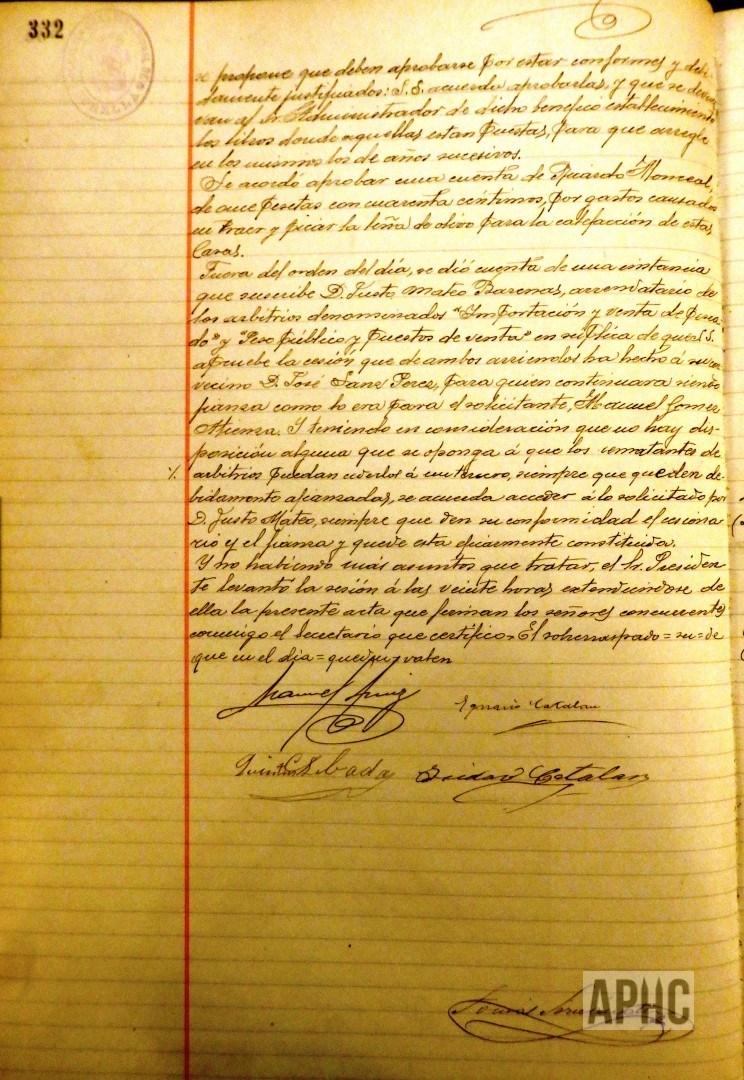 332
se propone que deben aprobarse por estar conformes y debi-
damente justificados: S. S. acuerda aprobarlas, y que se devuel
van al Sr. Administrador de dicho benéfico establecimiento
los libros donde aquellas estan puestas, para que arregle
en los mismos los de años sucesivos.
Se acordó aprobar una cuenta de Ricardo Monreal,
de once pesetas con cuarenta céntimos, por gastos causados
en traer y picar la leña de olivo para la calefacción de estas
Casas.
Fuera del orden del día, se dió cuenta de una instancia
que suscribe D. Justo Mateo Barenas, arrendatario de
los arbitrios denominados "Importación y venta de pesca
do" y "Peso público y puestos de venta" en súplica de que S. S.
apruebe la cesión que de ambos arriendos ha hecho á su con
vecino D. José Sanz Perez, para quien continuara siendo
fianza como lo era para el solicitante, Manuel Gomez
Atienza. Y teniendo en consideración que no hay dis-
posición alguna que se oponga á que los rematantes de
arbitrios puedan cederlos á un tercero, siempre que queden de-
bidamente afianzadas, se acuerda acceder á lo solicitado por
D. Justo Mateo, siempre que den su conformidad el cesiona
rio y el fianza y quede esta eficazmente constituida.
Y no habiendo más asuntos que tratar, el Sr. Presiden
te levantó la sesión á las veinte horas extendiendose de
ella la presente acta que firman los señores concurrentes
conmigo el secretario que certifico. El sobrerraspado = su = de
que en el dia = queden = valen
Manuel Ruiz
Ignacio Catalan
Isidoro Catalan
Tomás
APHC